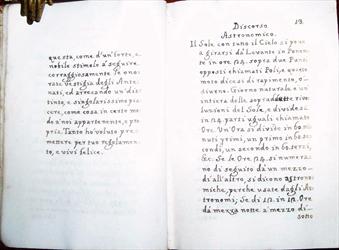 questa, come d'un forte, e
nobile stimolo à seguire
corraggiosamente le ono-
rate vestigia degli Ante-
nati, ed arrecando un dis-
tinto, e singolarissimo pia-
cere, come cosa in certo mo-
do à noi appartenente, e pro-
pria. Tanto hò voluto pre-
mettere per tuo regolamen-
to, e vivi felice.
13.
Discorso
Astronomico.
Il Sole con tutto il Cielo si muo-
girarsi dà Levante in Ponen-
te in ore 24. sopra due Punti
opposti chiamati Poli, e questo
moto dicesi di rapimento, o
diurno. Giorno naturale è un
intiera delle sopradette rivo-
luzioni del Sole, e dividesi
in 24. parti uguali chiamate
Ore. Un'Ora si divide in 60 mi-
nuti primi, un primo in 60 se-
condi, un secondo in 60 terzi,
&c. Se le Ore 24. si numera-
no di seguito da un mezzo-
dì all'altro, si dicono Astrono-
miche, perche usate dagli As-
tronomi; Se di 12. in 12. Ore
dà mezza notte à mezzo di-
sotto